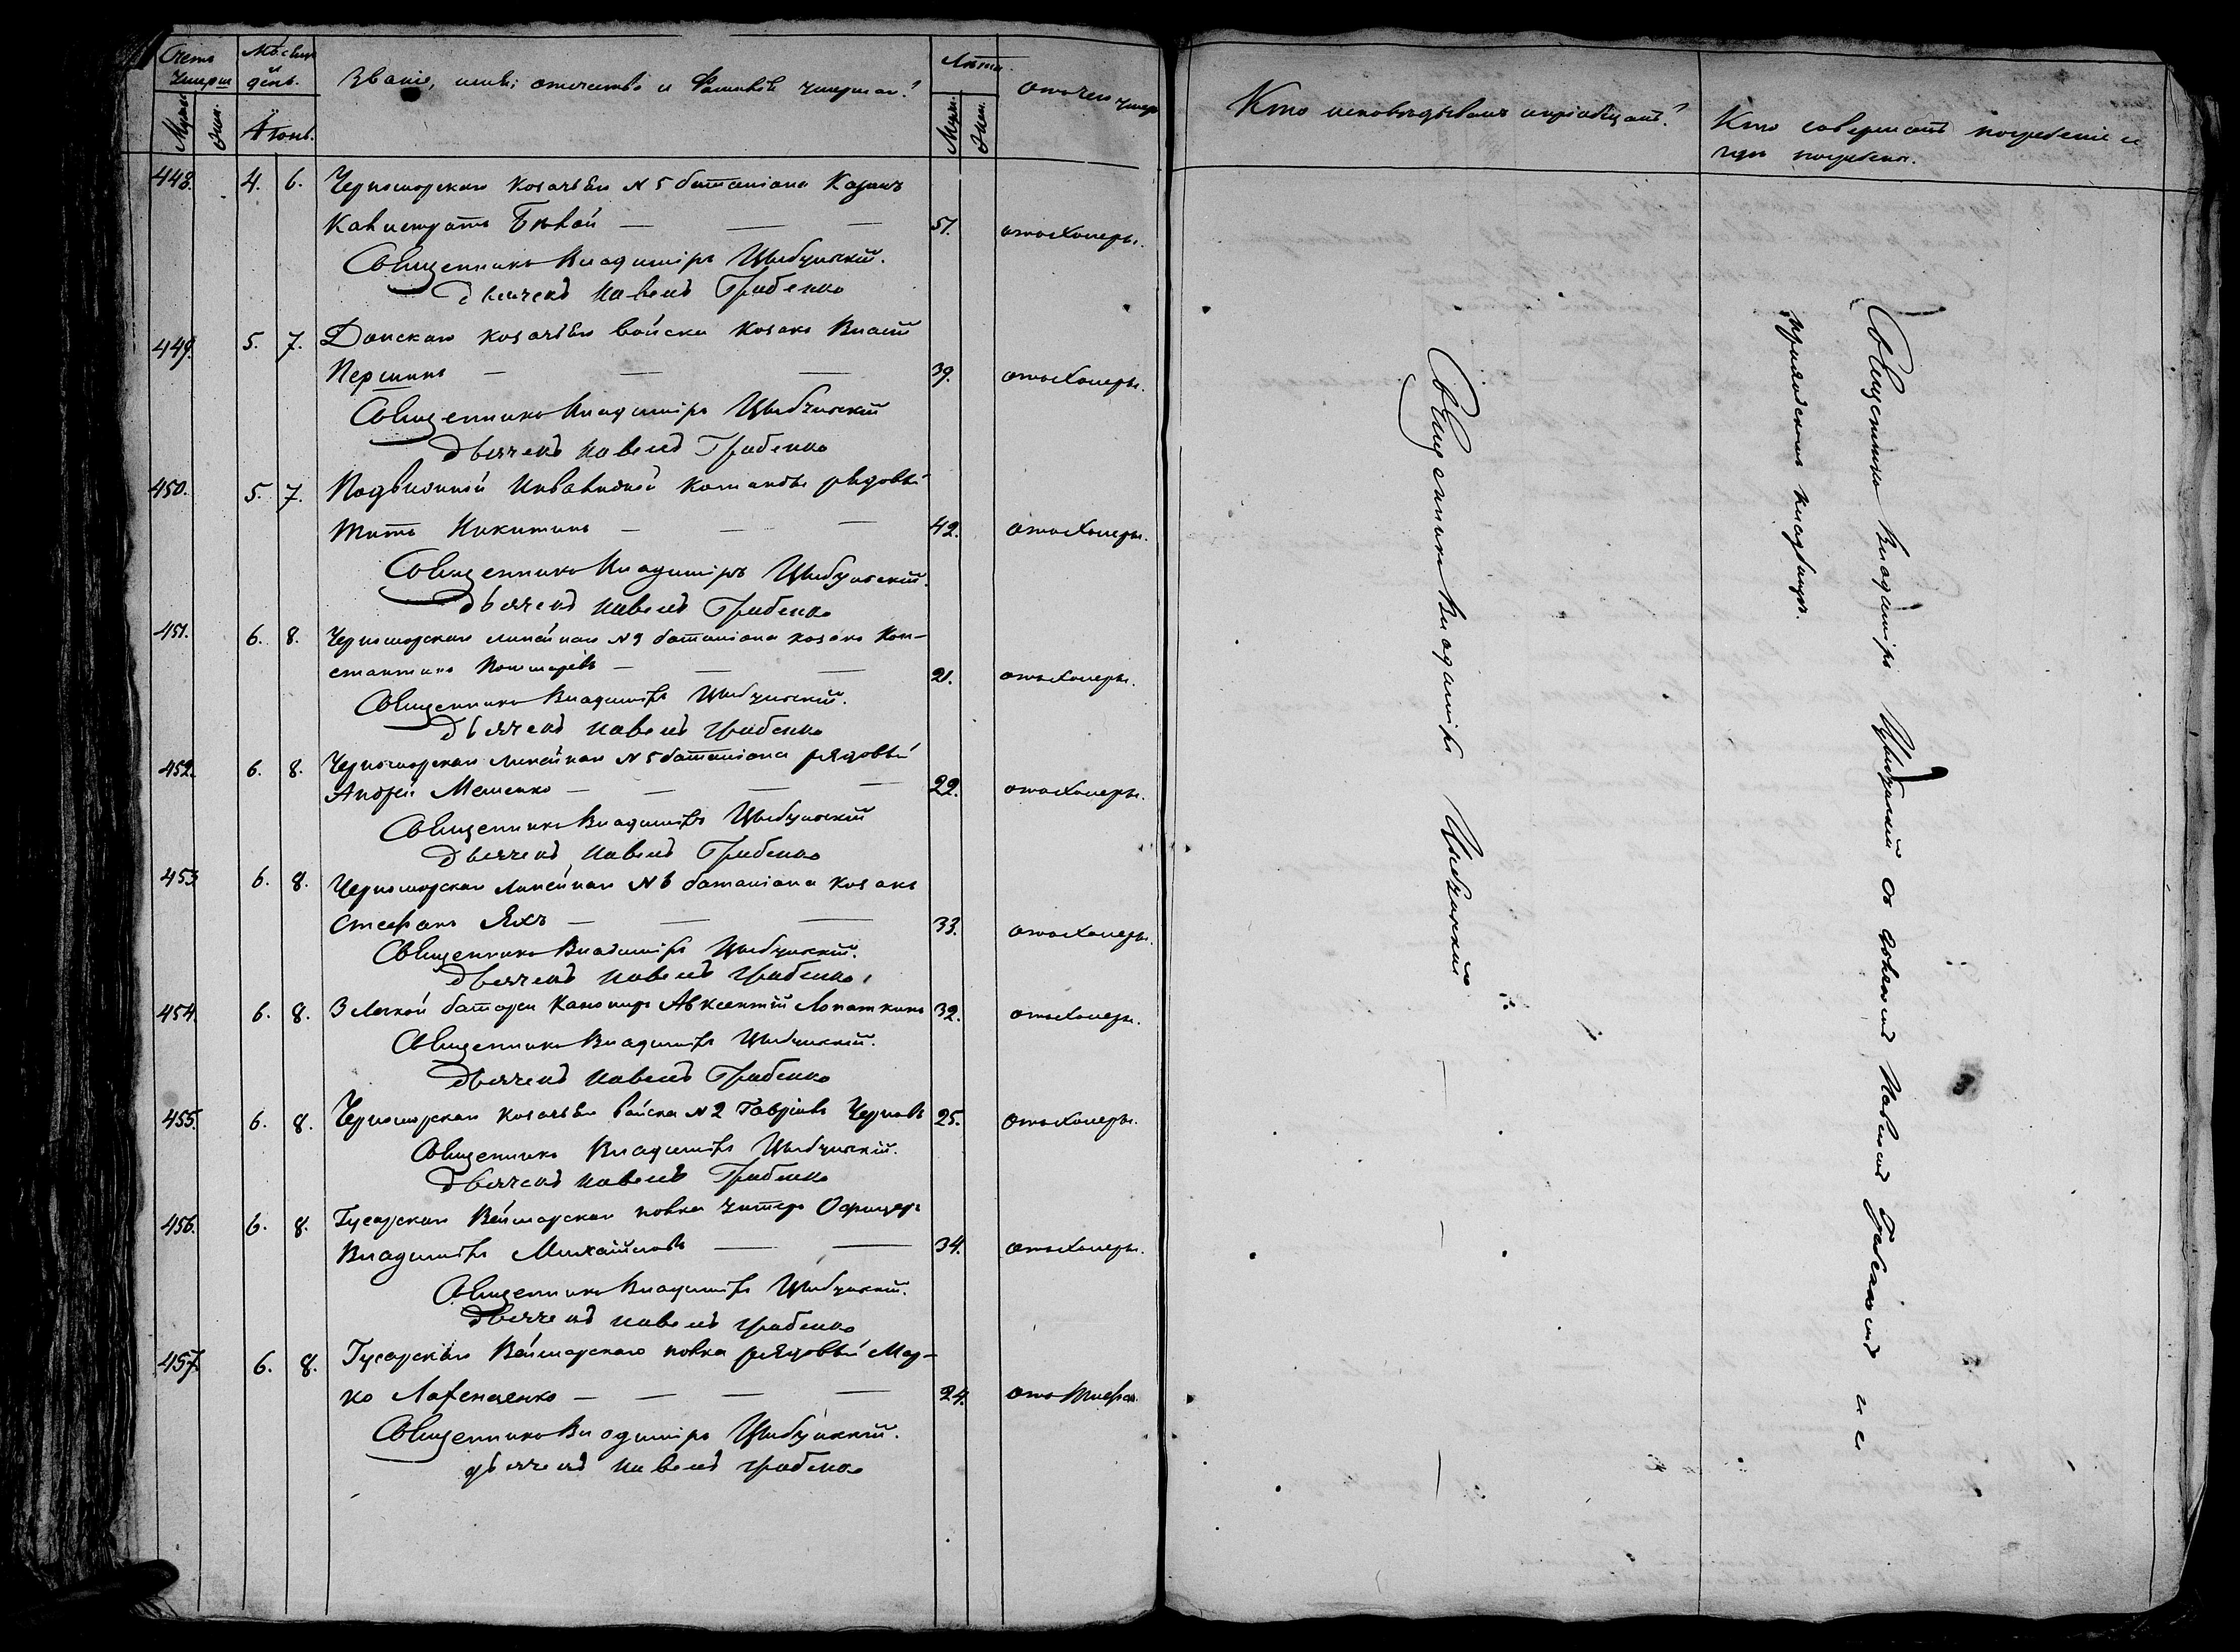 Счетъ умерш
Мужс. Жен.
Мѣсяцъ и день.
Іюнь.
Званіе, имя, отчество и Фамилія умершаго?
Лѣта.
Мужс. Жен.
Отъ чего умеръ
Кто исповѣдывалъ и пріобщалъ?
Кто совершалъ погребеніе и
гдѣ погребены.
448. 4. 6. Черноморскаго Козачьяго N 5 баталіона Казакъ
Бѣлой — — — 51. отъ Холеры.
Священникъ Владиміръ Цыбульскій.
Дьячекъ Павелъ Грабенко
449. 5. 7. Донскаго козачьяго войска козакъ
Першинъ — — — 39. отъ Холеры.
Священникъ Владиміръ Цыбульскій
Дьячекъ Павелъ Грабенко
450. 5. 7. Подвижной Инвалидной команды рядовый
Титъ Никитинъ — — — 42. отъ Холеры.
Священникъ Владиміръ Цыбульскій.
Дьячекъ Павелъ Грабенко
451. 6. 8. Черноморскаго линейнаго N 9 баталіона козакъ Кон-
стантинъ — — — 21. отъ Холеры.
Священникъ Владиміръ Цыбульскій.
Дьячекъ Павелъ Грабенко
452. 6. 8. Черноморскаго линейнаго N 5 баталіона рядовый
Андрей Мешенко — — — — 22. отъ Холеры.
Священникъ Владиміръ Цыбульскій
Дьячекъ Павелъ Грабенко
453 6. 8. Черноморскаго линейнаго N 6 баталіона козакъ
Стефанъ Яхъ — — — 33. отъ Холеры.
Священникъ Владиміръ Цыбульскій.
Дьячекъ Павелъ Грабенко
454. 6. 8. 3 Легкой батареи Канониръ Авксентій Лопаткинъ 32. отъ Холеры.
Священникъ Владиміръ Цыбульскій.
Дьячекъ Павелъ Грабенко
455. 6. 8. Черноморскаго козачьяго войска N 2 Гавріилъ Черновъ 25. отъ Холеры.
Священникъ Владиміръ Цыбульскій.
Дьячекъ Павелъ Грабенко
456. 6. 8. Гусарскаго Веймарскаго полка Унтеръ Офицеръ
Владиміръ Михайловъ — — 34. отъ Холеры.
Священникъ Владиміръ Цыбульскій.
Дьячекъ Павелъ Грабенко
457. 6. 8. Гусарскаго Веймарскаго полка рядовый Мар-
ко — — — — 24. отъ Тифа.
Священникъ Владиміръ Цыбульскій.
дьячекъ Павелъ Грабенко
Священникъ Владиміръ Цыбульскій — — —
Священникъ Владиміръ Цыбульскій съ дьячкомъ Павломъ Грабенкомъ и на
кладбищѣ.